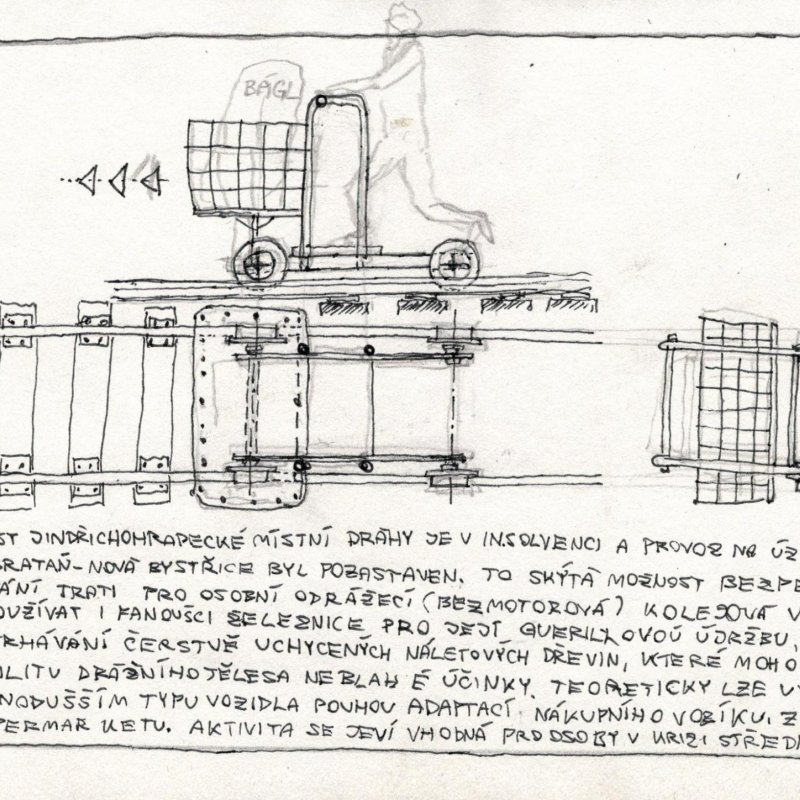 BÁGL
ST JINDŘICHOHRADECKÉ MÍSTNÍ DRÁHY JE V INSOLVENCI A PROVOZ NA ÚZ
BRATAŇ-NOVÁ BYSTŘICE BYL POZASTAVEN. TO SKÝTÁ MOŽNOST BEZPE
ÁNÍ TRATI PRO OSOBNÍ ODRÁŽECÍ (BEZMOTOROVÁ) KOLEJOVÁ V
OUŽÍVAT I FANOUŠCI ŽELEZNICE PRO JEJÍ GUERILLOVOU ÚDRŽBU,
TRHÁVÁNÍ ČERSTVĚ UCHYCENÝCH NÁLETOVÝCH DŘEVIN, KTERÉ MOHO
ILITU DRÁŽNÍHO TĚLESA NEBLAHÉ ÚČINKY. TEORETICKY LZE VY
NODUŠŠÍM TYPU VOZIDLA POUHOU ADAPTACÍ NÁKUPNÍHO VOZÍKU Z
PERMARKETU. AKTIVITA SE JEVÍ VHODNÁ PRO OSOBY V KRIZI STŘEDN